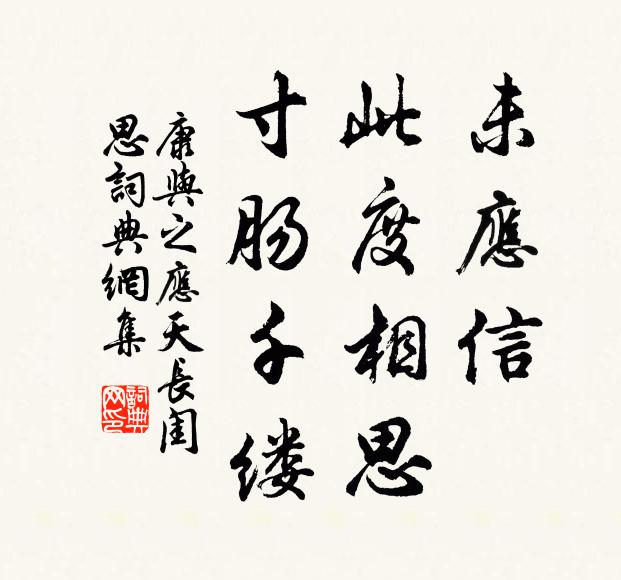 未應信
此度相思
寸肠千缕
康與之應天長閨
思詞典網集
詞典
网印